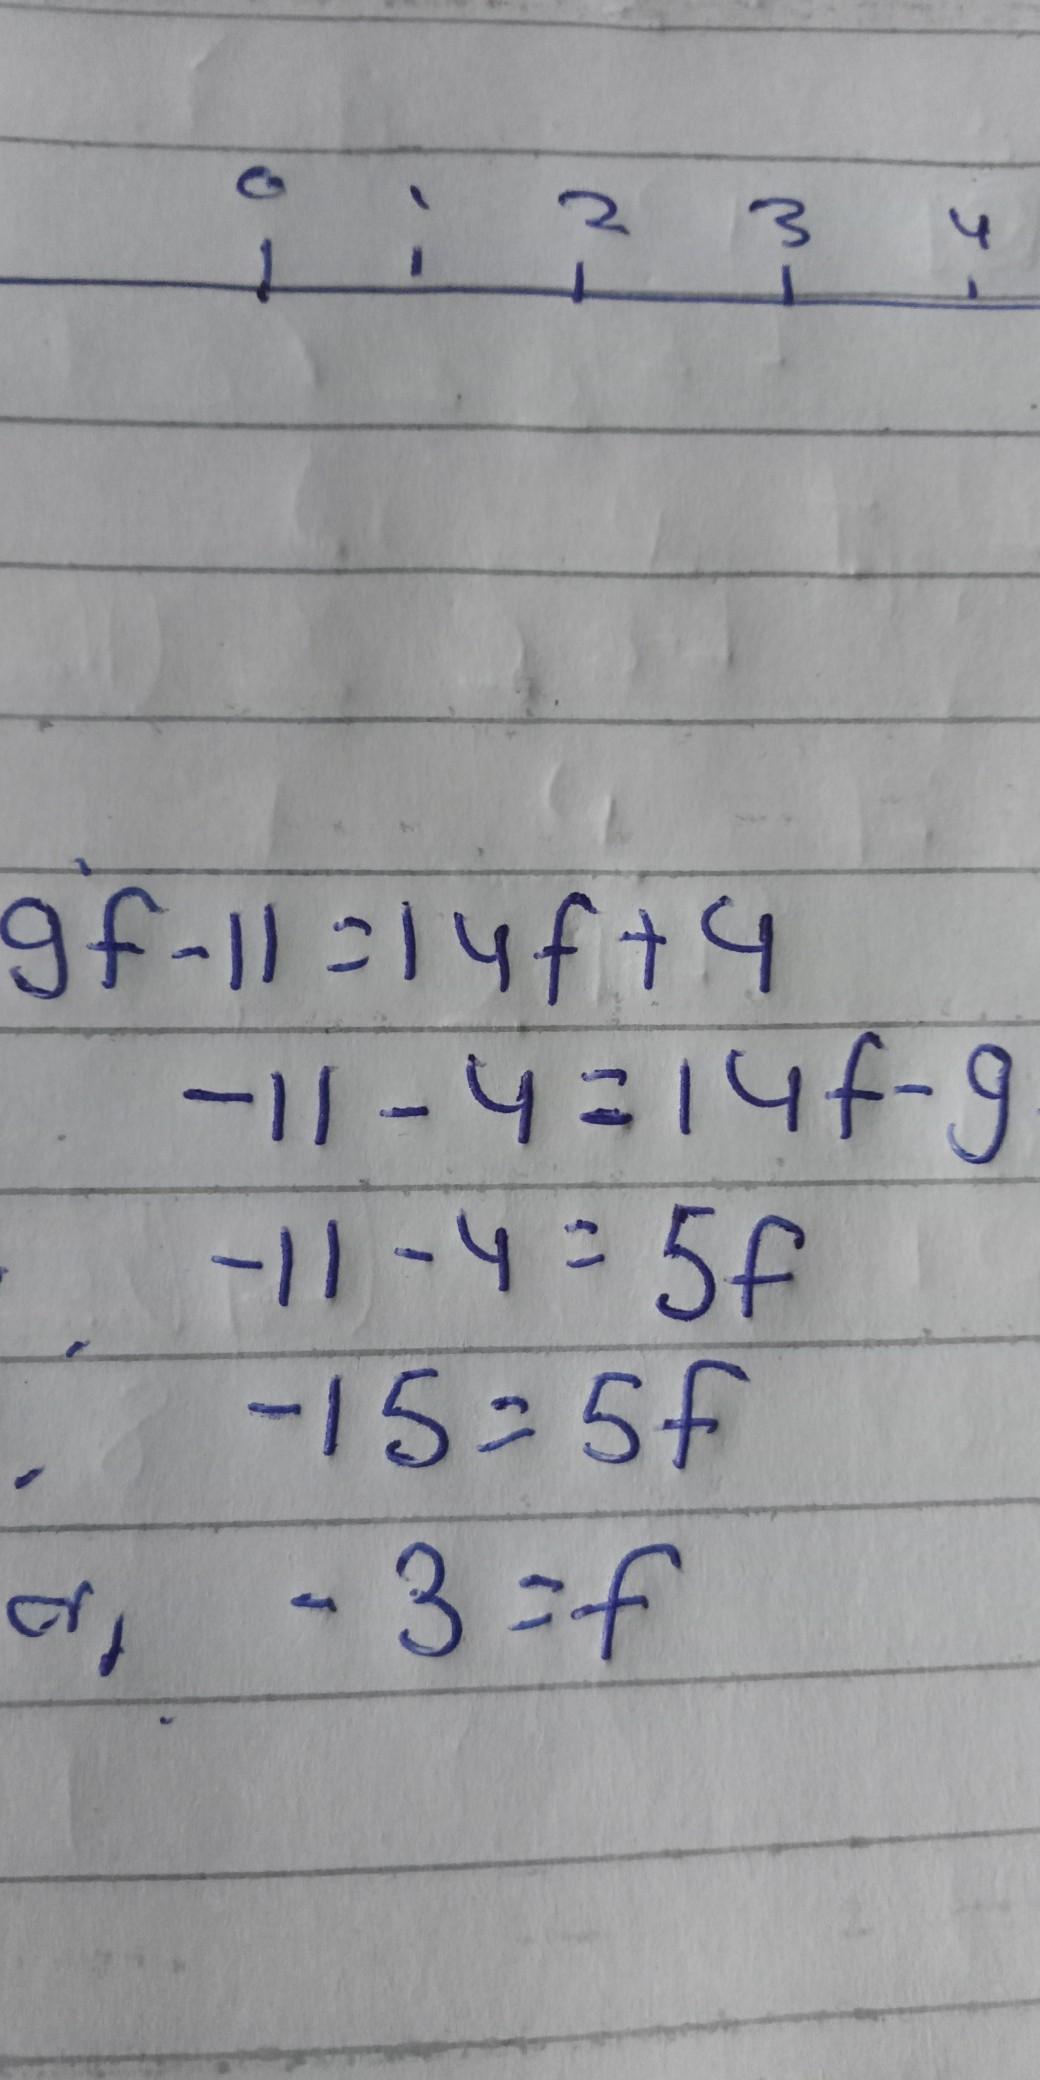 0 1 2 3 4
9f-11=14f+4
-11-4=14f-9
-11-4=5f
-15=5f
or, -3=f